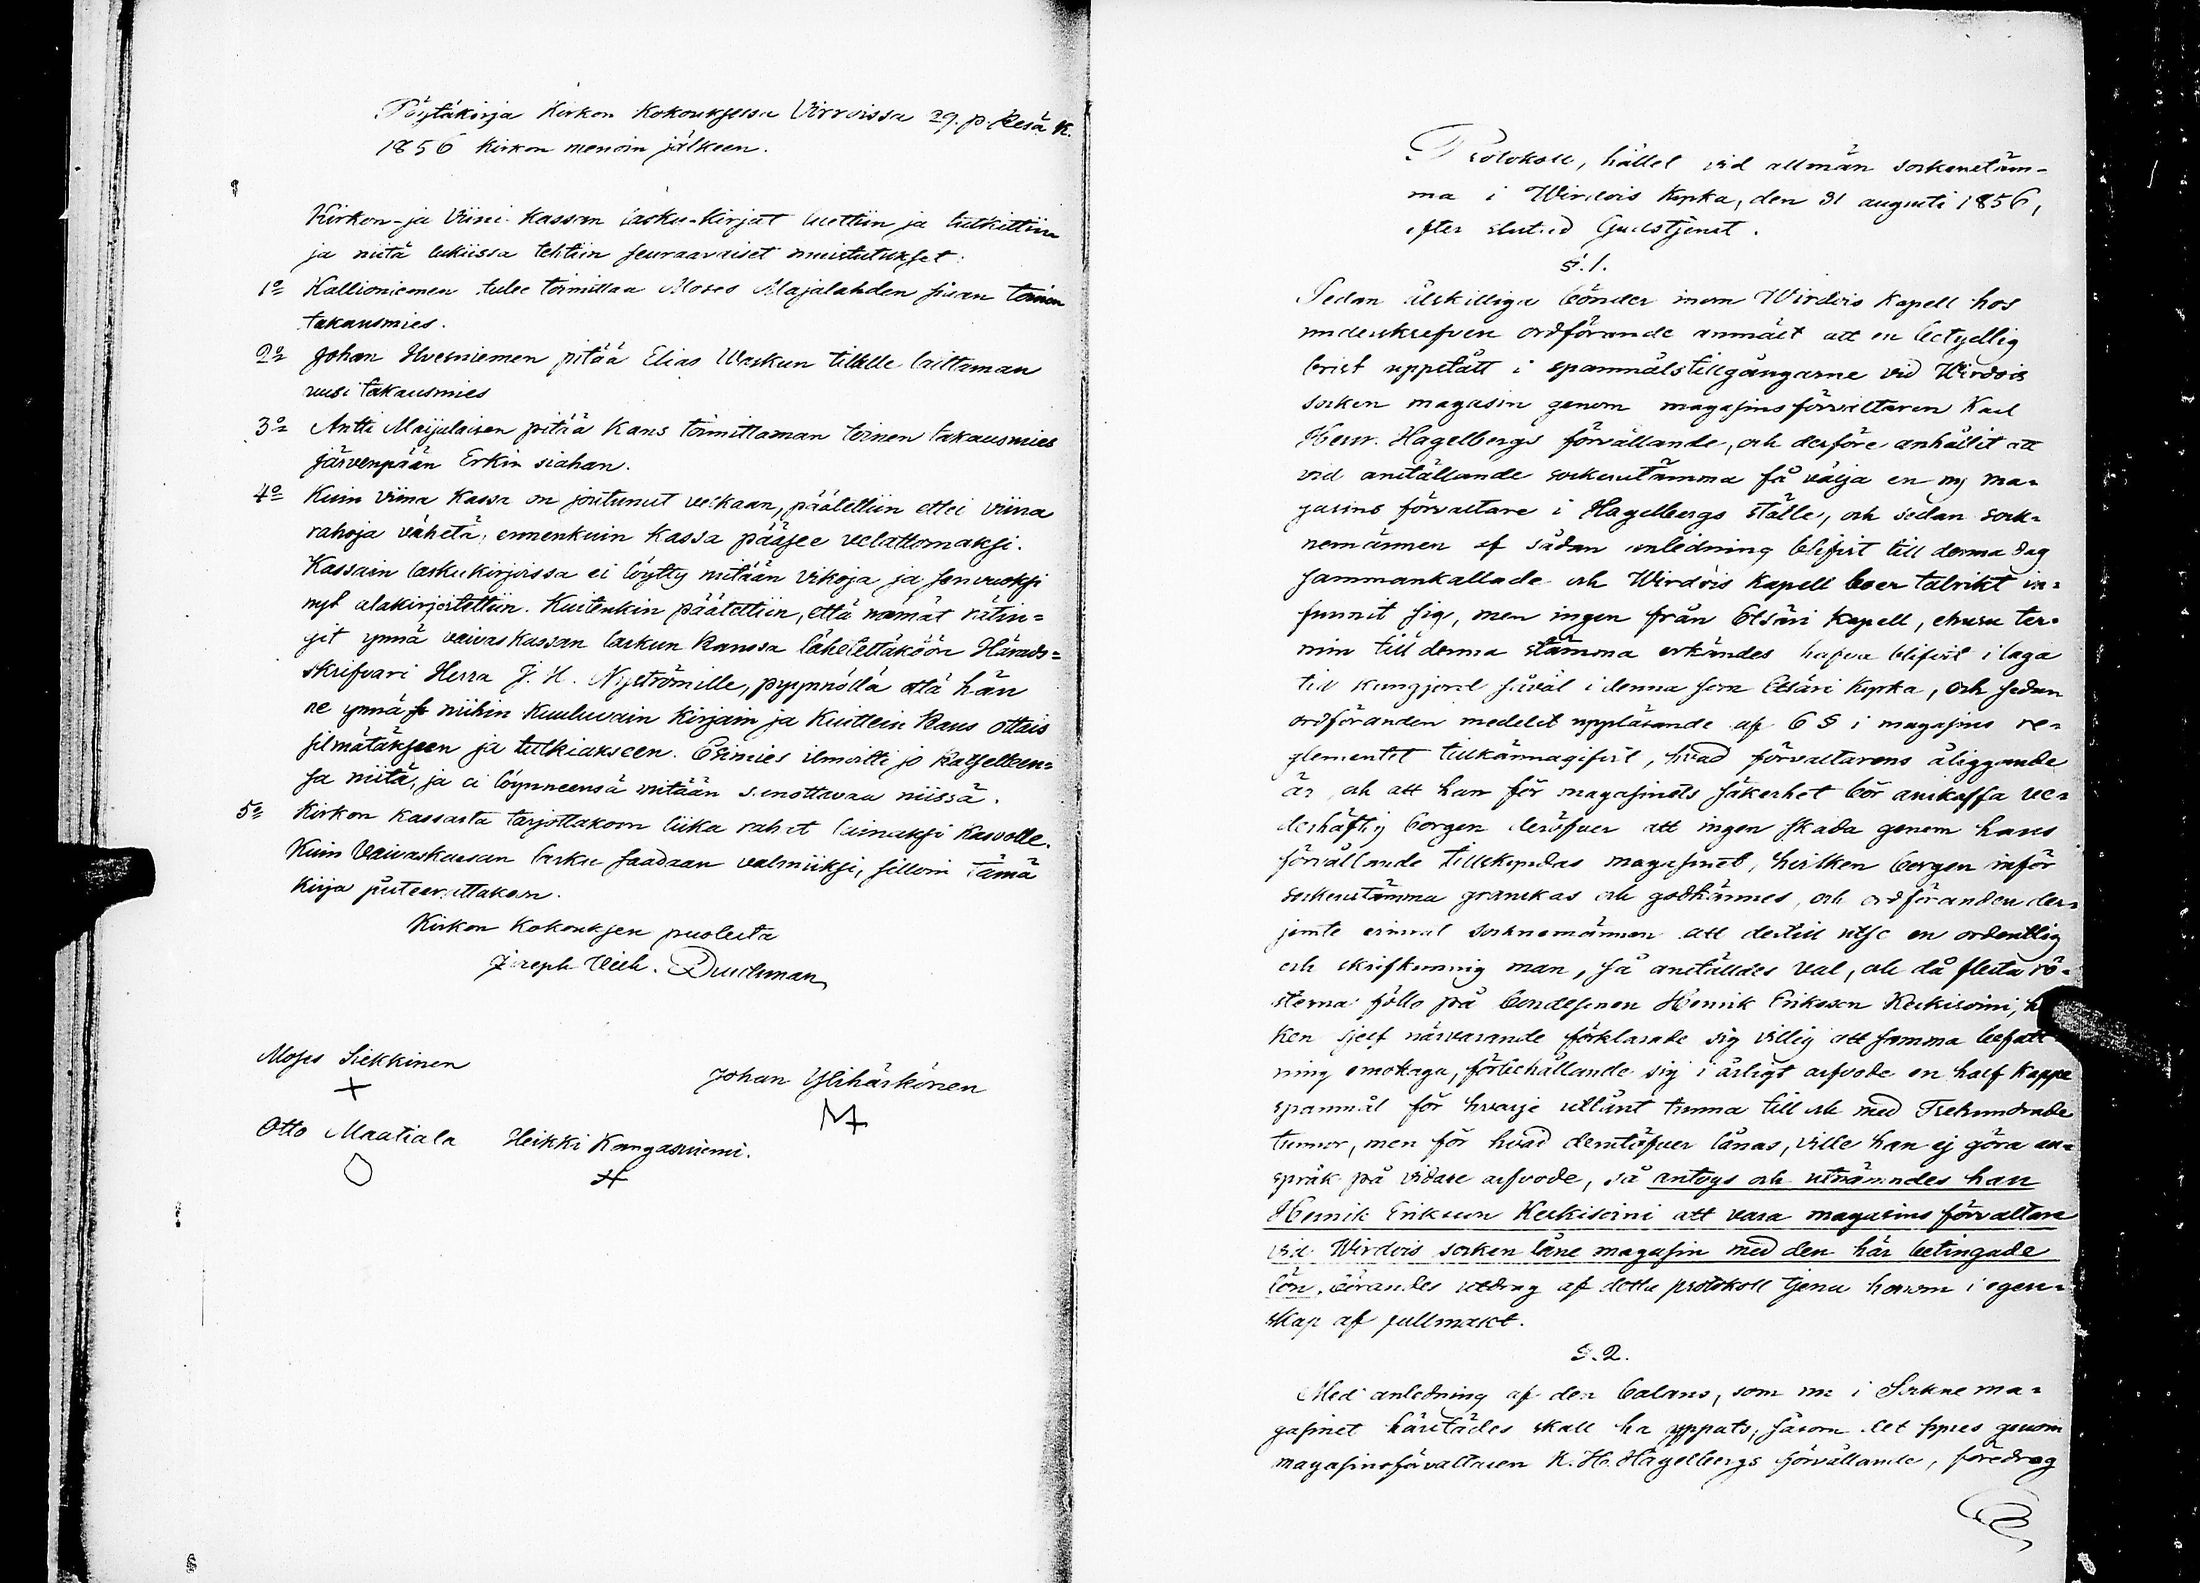 Pöytäkirja Kirkon Kokouksessa Virroissa 29. p. Kesä K.
1856 Kirkon menoin jälkeen.
Kirkon- ja Viini Kassan lasku-Kirjat luettiin ja tutkittiin
ja niitä lukiissa tehtiin seuraavaiset muistutukset:
1o Kallioniemen tulee toimittaa Moses Majalahden siaan toinen
takausmies.
2o Johan Hvesniemen pitää Elias Waskun tilalle laittaman
uusi takausmies
3o Antti Maijalaisen pitää Kans toimittaman toinen takausmies
Järvenpään Erkin siahan.
4o Kuin Viina Kassa on joutunut velkaan, päätettiin ettei viina
rahoja vähetä, ennenkuin Kassa pääsee velattomaksi.
Kassain laskukirjoissa ei löytty mitään vikoja ja senvuoksi
nyt alakirjoitettiin. Kuitenkin päätettiin, että nämät rätin=
git ynnä vaivaskassan laskun kanssa lähetettäköön Härads=
skrifvari Herra J. H. Nyströmille, pyynnöllä että hän
ne ynnä niihin Kuuluvain Kirjain ja Kuittein Kans ottais
silmätäkseen ja tutkiakseen. Esimies ilmoitti jo Katselleen=
sa niitä, ja ei löynneensä mitään s.nottavaa niissä.
5o Kirkon Kassasta tarjottakoon liika rahat lainaksi Kasvolle.
Kuin Vaivaskassan lasku saadaan valmiiksi, silloin tämä
Kirja julistettakoon.
Kirkon Kokouksen puolesta
Joseph Wilh. Durchman
Moses Siekkinen
Johan Ylihärkönen
Otto Maatiala Heikki Kangasniemi.
Protokoll, hållet vid allmän sockenstäm-
ma i Wirdois Kyrka, den 31 augusti 1856,
efter slutad Gudstjenst.
§. 1.
Sedan åtskilliga bönder inom Wirdois Kapell hos
underskrefven ordförande anmält att en betydlig
brist uppstått i spannmålstillgångarne vid Wirdois
socken magasin genom magasinsförvaltaren Karl
Henr. Hagelbergs förvållande, och derföre anhållit att
vid anställande sockenstämma få välja en ny ma=
gasins förvaltare i Hagelbergs ställe, och sedan sock=
nemännen af sådan anledning blifvit till denna dag
sammankallade och Wirdois Kapell boer talrikt in=
funnit sig, men ingen från Etsäri Kapell, ehuru ter=
min till denna stämma erkändes hafva blifvit i laga
tid kungjord såväl i denna som Etsäri Kyrka, och sedan
ordföranden medelst uppläsande af 6 § i magasins re=
glementet tillkännagifvit, hvad förvaltarens åliggande
är, och att han för magasinets säkerhet bör anskaffa ve=
derhäftig borgen deröfver att ingen skada genom hans
förvållande tillskyndas magasinet, hvilken borgen inför
sockenstämma granskas och godkännes, och ordföranden der=
jemte erinrat socknemännen att dertill utse en ordentlig
och skrifkunnig man, så anställdes val, och då flesta rö=
sterna föllo på bondesonen Henrik Eriksson Keskisoini, h
ken sjelf närvarande förklarade sig villig att samma befatt
ning emottaga, förbehållande sig i årligt arfvode en half kappe
spannmål för hvarje utlånt tunna till och med Trehundrade
tunnor, men för hvad derutöfver lånas, ville han ej göra an=
språk på vidare arfvode, så antogs och utnämndes han
Henrik Eriksson Keskisoini att vara magasins förvaltare
vid Wirdois socken låne magasin med den här betingade
lön, börandes utdrag af detta protokoll tjena honom i egen=
skap af fullmakt.
§. 2.
Med anledning af den balans, som nu i Sockne ma=
gasinet härstädes skall ha yppats, såsom det synes genom
magasinsförvaltaren K. Hr. Hagelbergs förvållande, föredrog